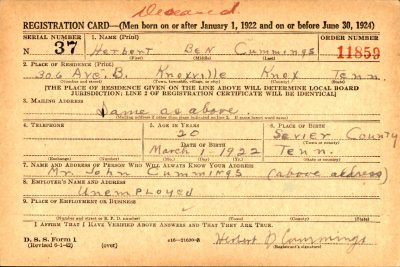 Deceased
REGISTRATION CARD—(Men born on or after January 1, 1922 and on or before June 30, 1924)
SERIAL NUMBER 1. NAME (Print) ORDER NUMBER
N 37 Herbert Ben Cummings 11859
(First) (Middle) (Last)
2. PLACE OF RESIDENCE (Print)
306 Ave. B. Knoxville Knox Tenn.
(Number and street) (Town, township, village, or city) (County) (State)
[THE PLACE OF RESIDENCE GIVEN ON THE LINE ABOVE WILL DETERMINE LOCAL BOARD
JURISDICTION; LINE 2 OF REGISTRATION CERTIFICATE WILL BE IDENTICAL]
3. MAILING ADDRESS
Same as above
(Mailing address if other than place indicated on line 2. If same insert word same)
4. TELEPHONE 5. AGE IN YEARS 6. PLACE OF BIRTH
20 Sevier County
DATE OF BIRTH (Town or county)
March 1 1922 Tenn.
(Exchange) (Number) (Mo.) (Day) (Yr.) (State or country)
7. NAME AND ADDRESS OF PERSON WHO WILL ALWAYS KNOW YOUR ADDRESS
Mr. John Cummings (above address)
8. EMPLOYER'S NAME AND ADDRESS
Unemployed
9. PLACE OF EMPLOYMENT OR BUSINESS
(Number and street or R. F. D. number) (Town) (County) (State)
I AFFIRM THAT I HAVE VERIFIED ABOVE ANSWERS AND THAT THEY ARE TRUE.
D. S. S. Form 1
(Revised 6-1-42) (over) Herbert B Cummings
(Registrant's signature)